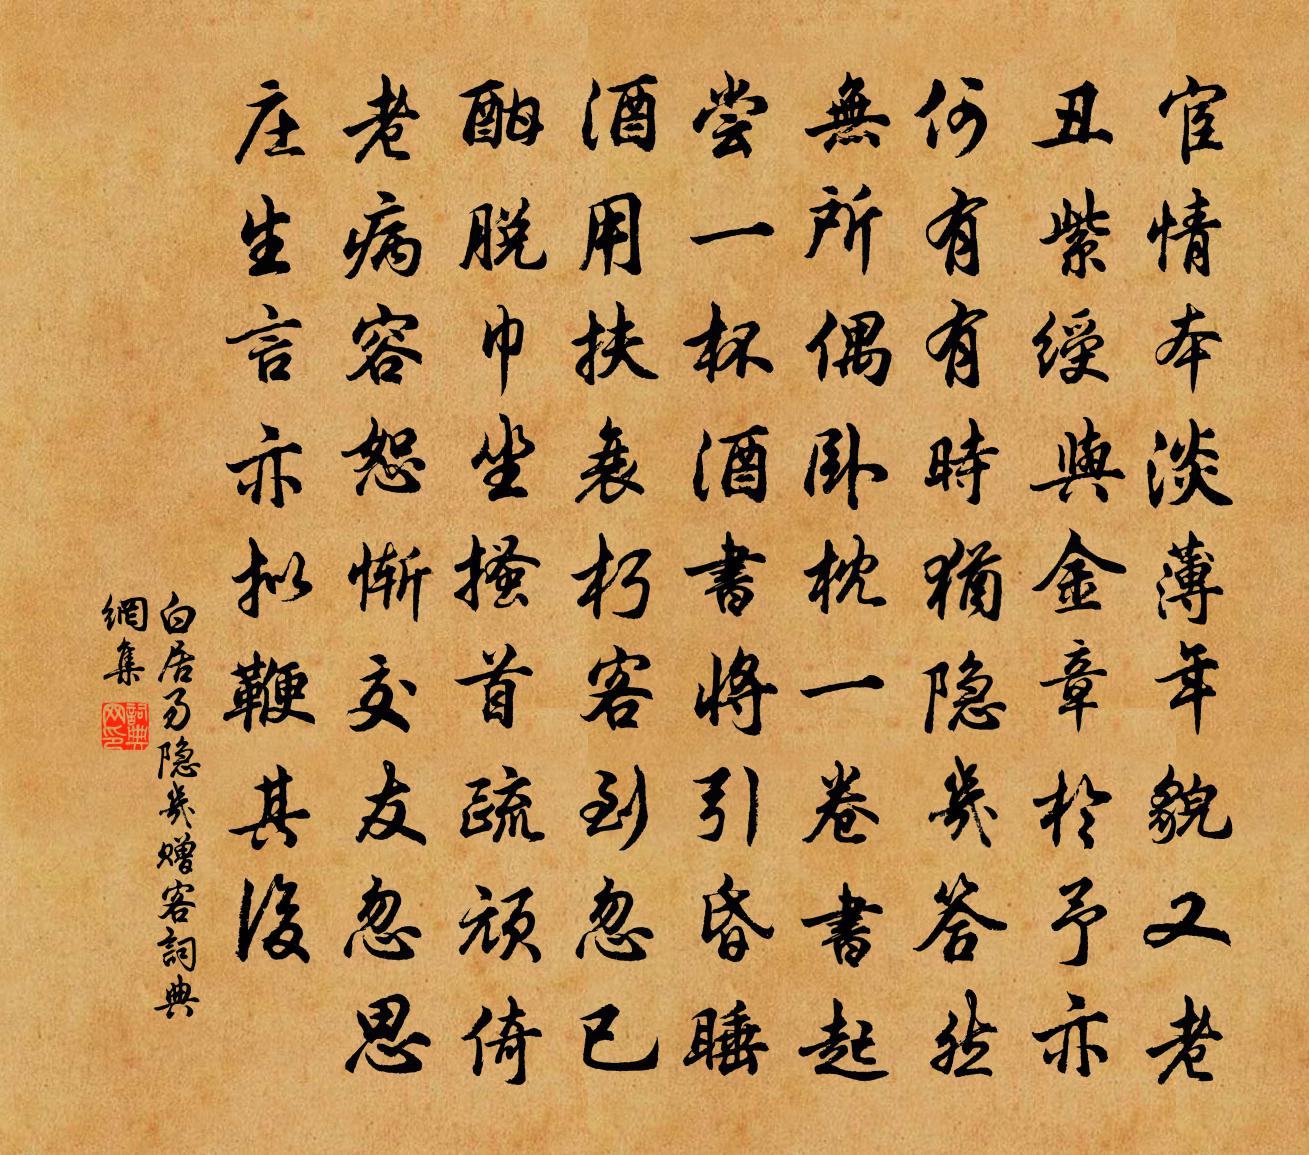 宦情本淡薄年貌又老
丑紫綬與金章於予亦
何有有時猶隐几答然
無所偶卧枕一卷書起
尝一杯酒書將引昏睡
酒用扶衰朽客到忽已
酣脱巾坐搔首疏顽倚
老病容恕惭交友忽思
庄生言亦拟鞭其後
白居易隐几赠客詞典
網集